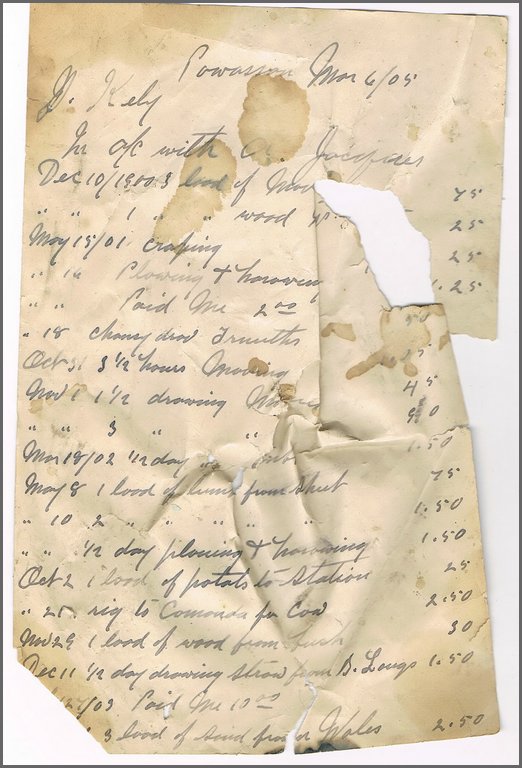 Powassan Mar 6/05
D. Kely
In a/c with A. Jacques
Dec 10/1900 3 load of 75
" " 1 " " wood 25
May 15/01 craping 25
" 16 Plowing & harowing 1.25
" " Paid Me 2 00 50
" 18 drod 25
Oct 31 3 1/2 hours Moving 45
Nov 1 1 1/2 drawing
" " 3 " " 1.50
Mar 18/02 1/2 day 75
May 8 1 load of from Sheet 1.50
" 10 2 " " " " 1.50
" " 1/2 day plowing & harowing 25
Oct 2 1 load of potats to Station 2.50
" 25 rig to Comanda for Cow 30
Nov 29 1 load of wood from bush 1.50
Dec 11 1/2 day drawing straw from B. Longs
/03 Paid Me 10 00
3 load of from Wales 2.50